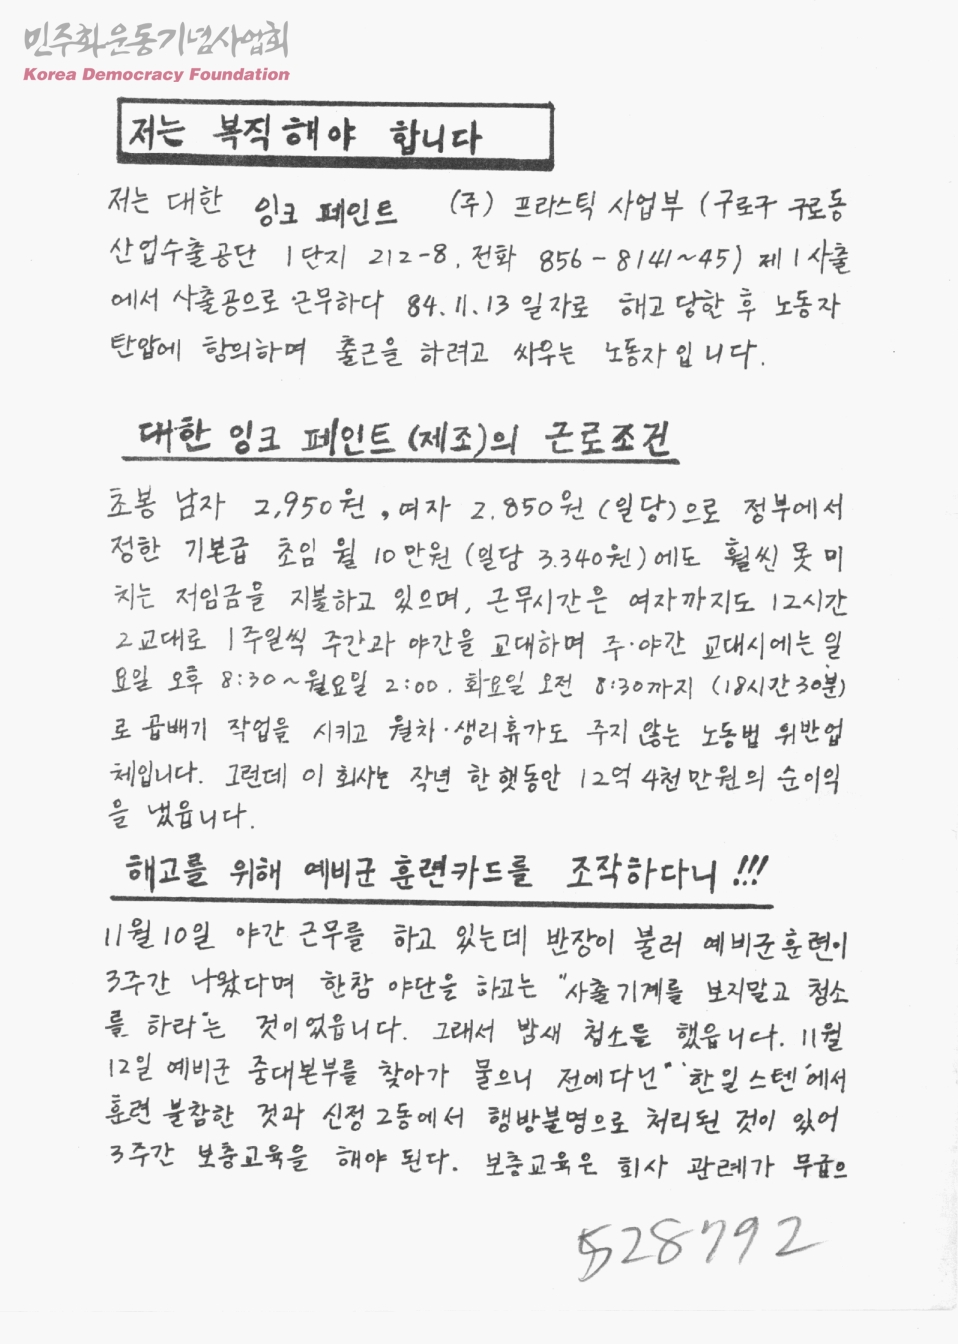 민주화운동기념사업회
Korea Democracy Foundation
저는 복직해야 합니다
저는 대한 잉크 페인트 (주) 프라스틱 사업부 (구로구 구로동
산업수출공단 1단지 212-8. 전화 856-8141~45) 제1사출
에서 사출공으로 근무하다 84.11.13일자로 해고 당한 후 노동자
탄압에 항의하며 출근을 하려고 싸우는 노동자입니다.
대한 잉크 페인트(제조)의 근로조건
초봉 남자 2,950원, 여자 2.850원(일당)으로 정부에서
정한 기본급 초임 월 10만원(일당 3.340원)에도 훨씬 못 미
치는 저임금을 지불하고 있으며, 근무시간은 여자까지도 12시간
2교대로 1주일씩 주간과 야간을 교대하며 주·야간 교대시에는 일
요일 오후 8:30~월요일 2:00. 화요일 오전 8:30까지 (18시간30분)
로 곱배기 작업을 시키고 월차·생리휴가도 주지 않는 노동법 위반업
체입니다. 그런데 이 회사는 작년 한햇동안 12억 4천만원의 순이익
을 냈읍니다.
해고를 위해 예비군 훈련카드를 조작하다니!!!
11월 10일 야간 근무를 하고 있는데 반장이 불러 예비군훈련이
3주간 나왔다며 한참 야단을 하고는 "사출기계를 보지말고 청소
를 하라"는 것이었읍니다. 그래서 밤새 청소를 했읍니다. 11월
12일 예비군 중대본부를 찾아가 물으니 전에다닌 "한일스텐"에서
훈련 불참한 것과 신정2동에서 행방불명으로 처리된 것이 있어
3주간 보충교육을 해야 된다. 보충교육은 회사 관례가 무급으
528792